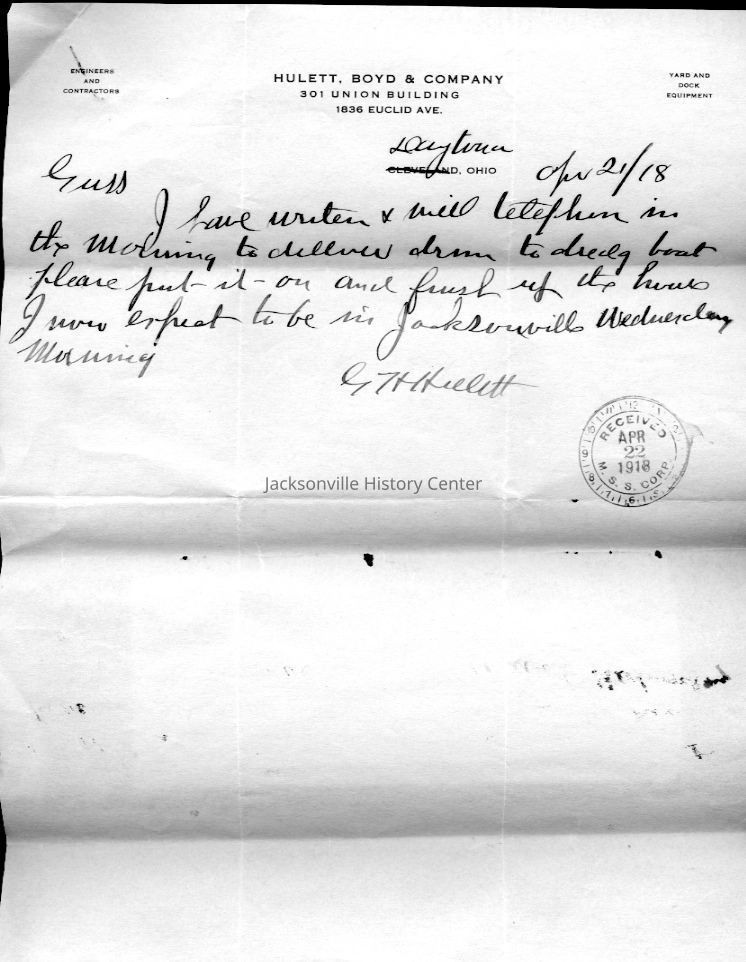 ENGINEERS
AND
CONTRACTORS
HULETT, BOYD & COMPANY
301 UNION BUILDING
1836 EUCLID AVE.
YARD AND
DOCK
EQUIPMENT
Daytona
CLEVELAND, OHIO Apr 21/18
Guss
I have writen & will telephon in
the Morning to delliver drum to dredg boat
please put-it-on and finish up the hous
I now expect to be in Jacksonville Wednesday
Morning
G H Hulett
RECEIVED
APR
22
1918
M. S. S. CORP.
Jacksonville History Center